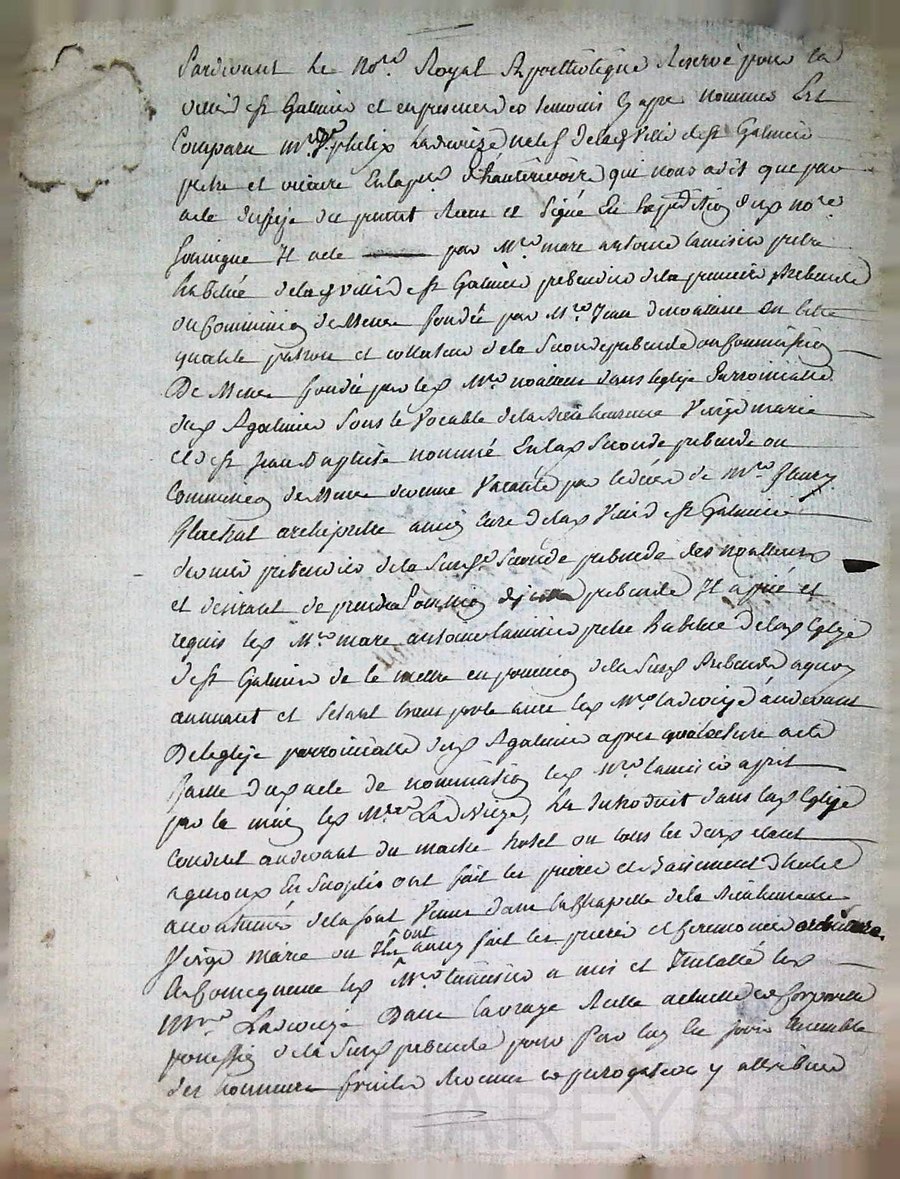 Pardevant le no.re Royal Apostholique Reservé pour la
ville de st Galmier et en presence des temoins cy apres nommés Est
Comparu mr. phelix Ladveize natif de lad ville de st Galmier
pretre et vicaire En la par. d'hauterivoire qui nous a dit que par
acte du jour du present Receu et signé En Expedition dud no.re
soussigné Il acte par Mre marc antoine lamisire pretre
habitué de lad ville de st Galmier prebendier de la premiere prebende
ou Commission de Messes fondée par Mre Jean en cette
qualité patron et collateur de la Seconde prebende ou Commission
De Messes fondée par led Mre dans l'eglise Parroissialle
dud st galmier sous le Vocable de la Bienheureuse Vierge marie
et de st Jean Baptiste nommé En lad Seconde prebende ou
Commission de Messes devenue Vacante par le deces de Mre fleury
flachat archipretre ancien curé de lad Ville de st Galmier
dernier prebendier de la susd Seconde prebende des
et desirant de prendre possession de prebende Il a prié et
requis led Mre marc antoine lamisire pretre habitué de lad Eglise
de st Galmier de le mettre en possession de la susd Prebende a quoy
annuant et s'etant transporté avec led Mre ladveize au devant
De l'eglise parroissialle dud st galmier apres que lecture a eté
faitte dud acte de nomination led Mre lamisire a prit
par la main led Mre Ladveize, l'a Introduit dans lad Eglise
Conduit au devant du maitre hotel ou tous les deux etant
a genoux En Surplis ont fait les prieres et Baisement d'hotel
accoutumés de la sont Venus dans la Chapelle de la Bienheureuse
Vierge Marie ou Ils ont aussy fait les prieres et Ceremonies ordinaires.
En Consequence led Mre lamisire a mis et Installé led
Mre Ladveize Dans la vraye Reelle actuelle et Corporelle
possession de la susd prebende pour Par luy En jouir Ensemble
des honneurs fruits Revenus et prerogatives y attribués
Pascal CHAREYRON